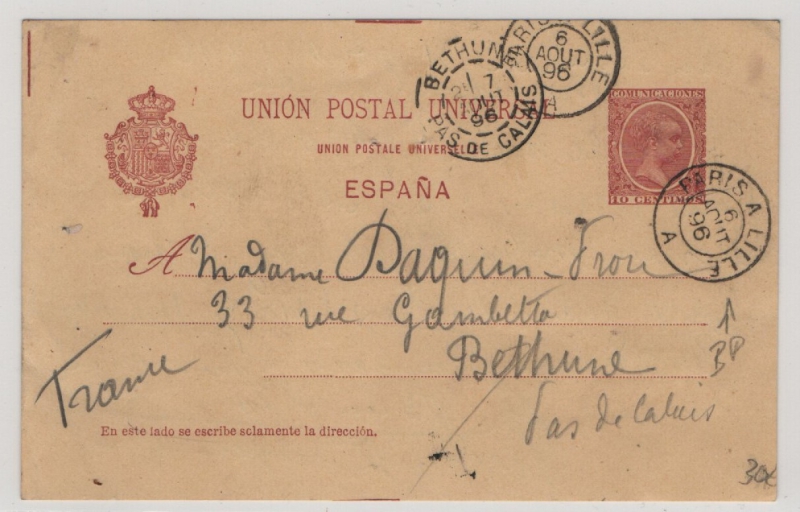 PARIS A LILLE
6
AOUT
96
A
BETHUNE
7
AOUT
96
PAS DE CALAIS
COMUNICACIONES
UNIÓN POSTAL UNIVERSAL
UNION POSTALE UNIVERSELLE
ESPAÑA
10 CENTIMOS
PARIS A LILLE
6
AOUT
96
A
A Madame Daquin-
33 rue Gambetta
Bethune
France
Pas de Calais
En este lado se escribe solamente la dirección.
BP
30€